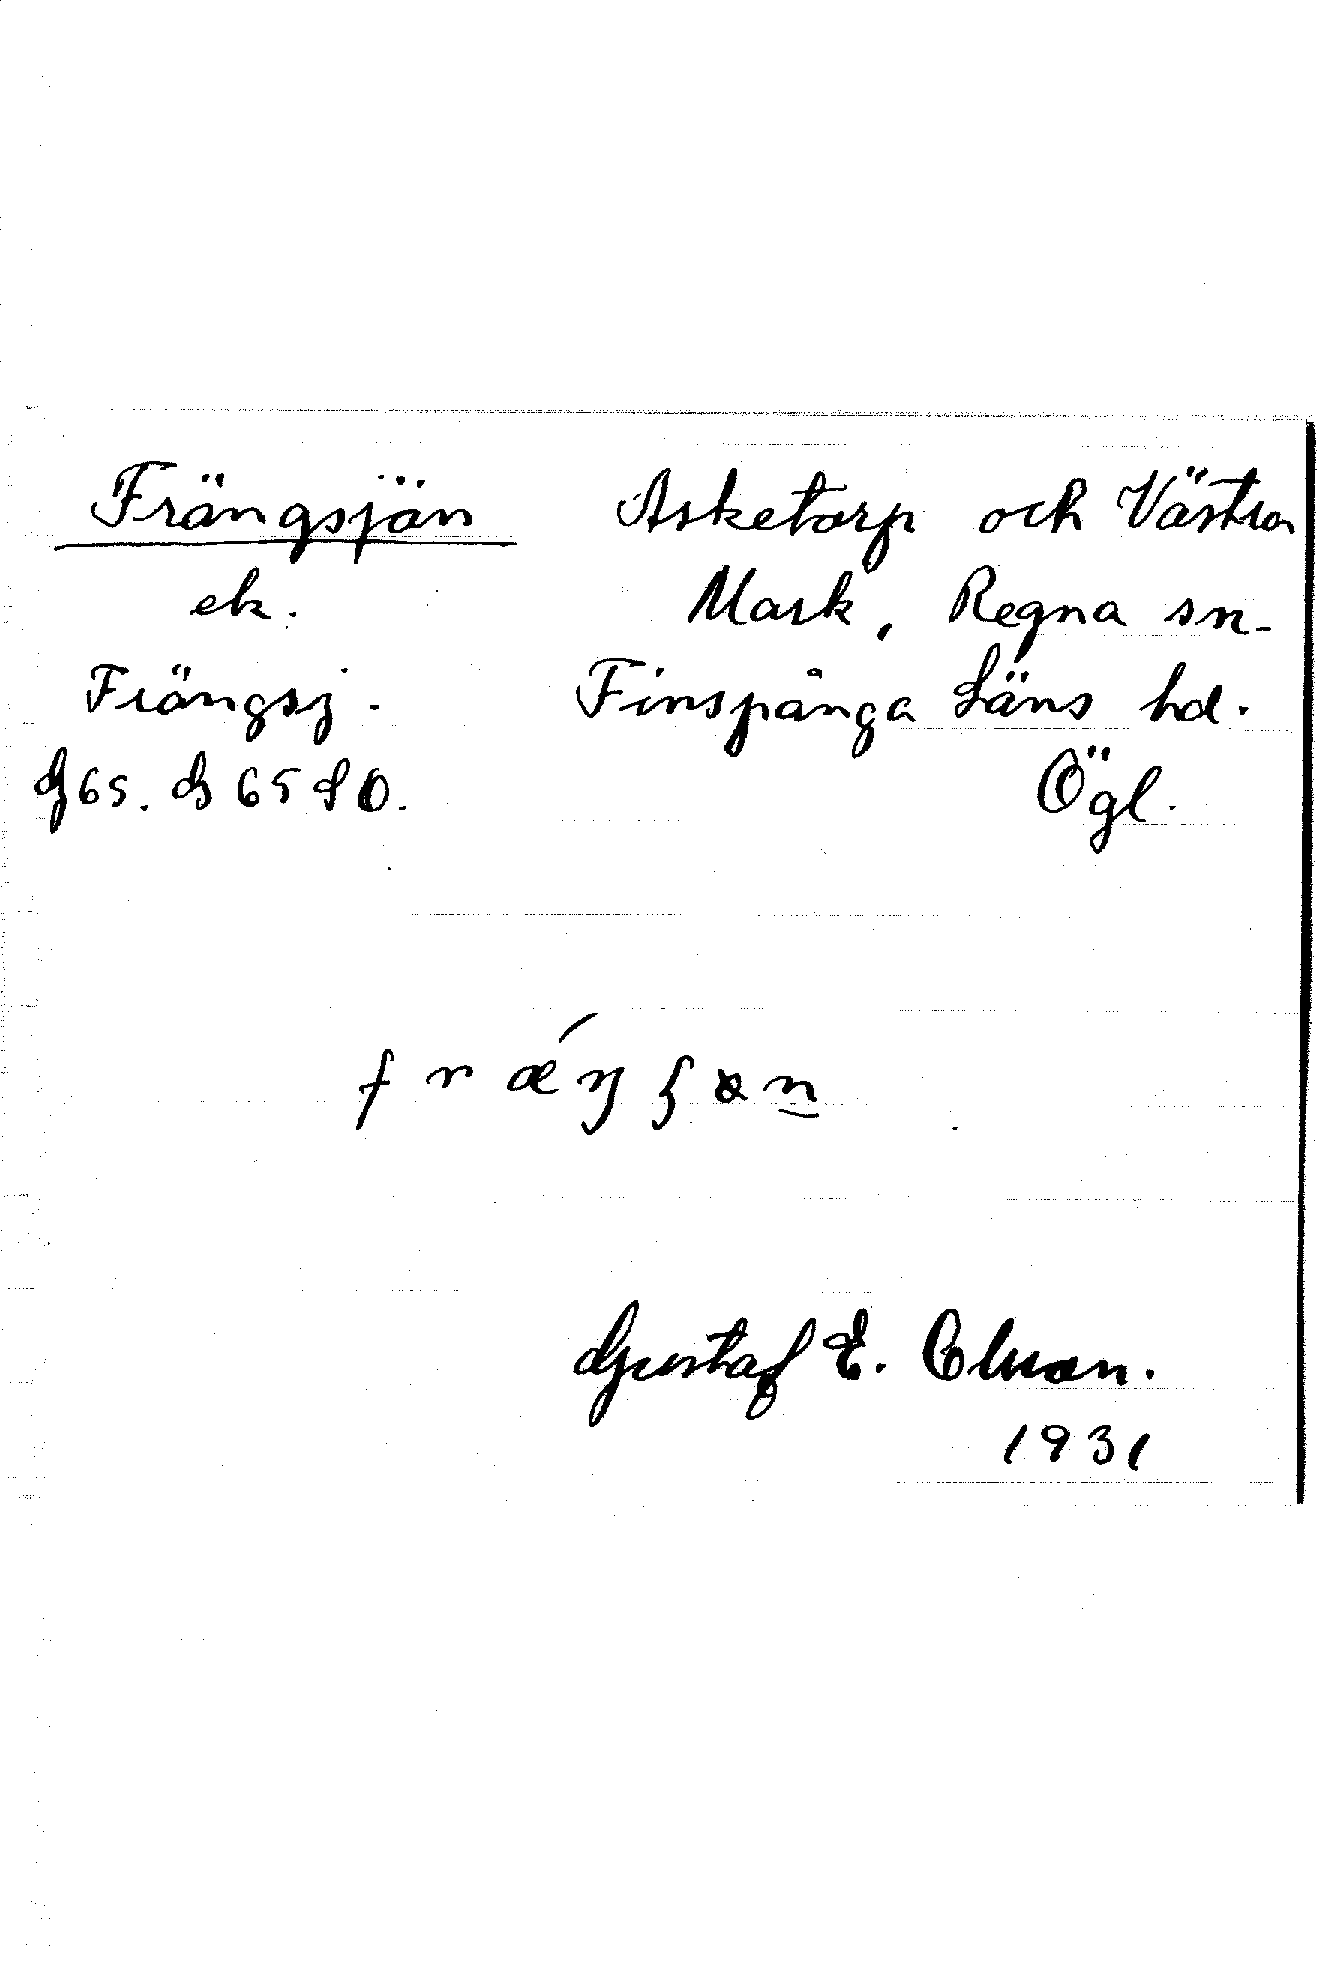 Frängsjön
ek.
Frängsj.
G65. G 65 d O.
Asketorp och Västra
Mark, Regna sn.
Finspånga Läns hd.
Ögl.
Gustaf E.
1931